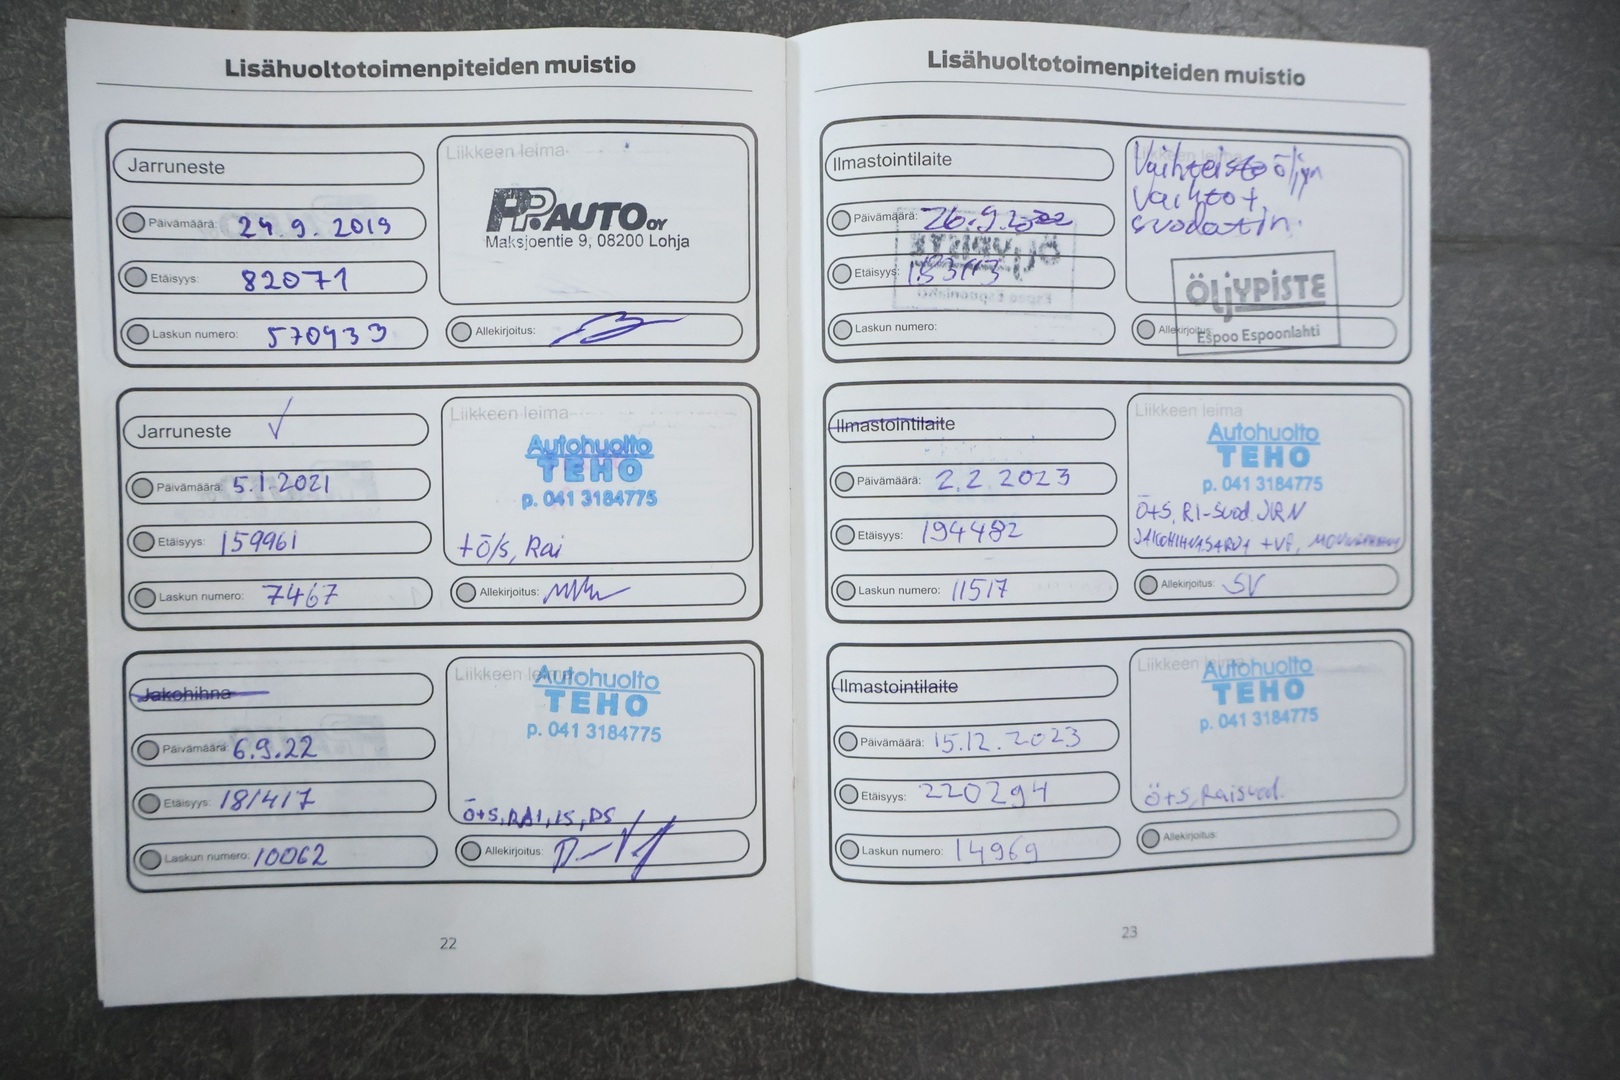 Lisähuoltotoimenpiteiden muistio
Jarruneste
Päivämäärä: 24.9.2019
Etäisyys: 82071
Laskun numero: 570933
Liikkeen leima
PP.AUTO OY
Maksjoentie 9, 08200 Lohja
Allekirjoitus:
Jarruneste ✓
Päivämäärä: 5.1.2021
Etäisyys: 159961
Laskun numero: 7467
Liikkeen leima
Autohuolto
TEHO
p. 041 3184775
+ö/s, Rai
Allekirjoitus:
Jakohihna
Päivämäärä: 6.9.22
Etäisyys: 181417
Laskun numero: 10062
Liikkeen leima
Autohuolto
TEHO
p. 041 3184775
Ö+S, RAI, IS, PS
Allekirjoitus:
22
Lisähuoltotoimenpiteiden muistio
Ilmastointilaite
Päivämäärä: 26.9.2022
Etäisyys:
Laskun numero:
Vaihteistoöljyn
vaihto+
suodatin.
ÖljYPISTE
Espoo Espoonlahti
Allekirjoitus:
Ilmastointilaite
Päivämäärä: 2.2.2023
Etäisyys: 194482
Laskun numero: 11517
Liikkeen leima
Autohuolto
TEHO
p. 041 3184775
Ö+S, RI-Suod. JRN
JAKOHIHNASARJA +VP,
Allekirjoitus: SV
Ilmastointilaite
Päivämäärä: 15.12.2023
Etäisyys: 220294
Laskun numero: 14969
Liikkeen leima
Autohuolto
TEHO
p. 041 3184775
ö+S, Raisuod.
Allekirjoitus:
23